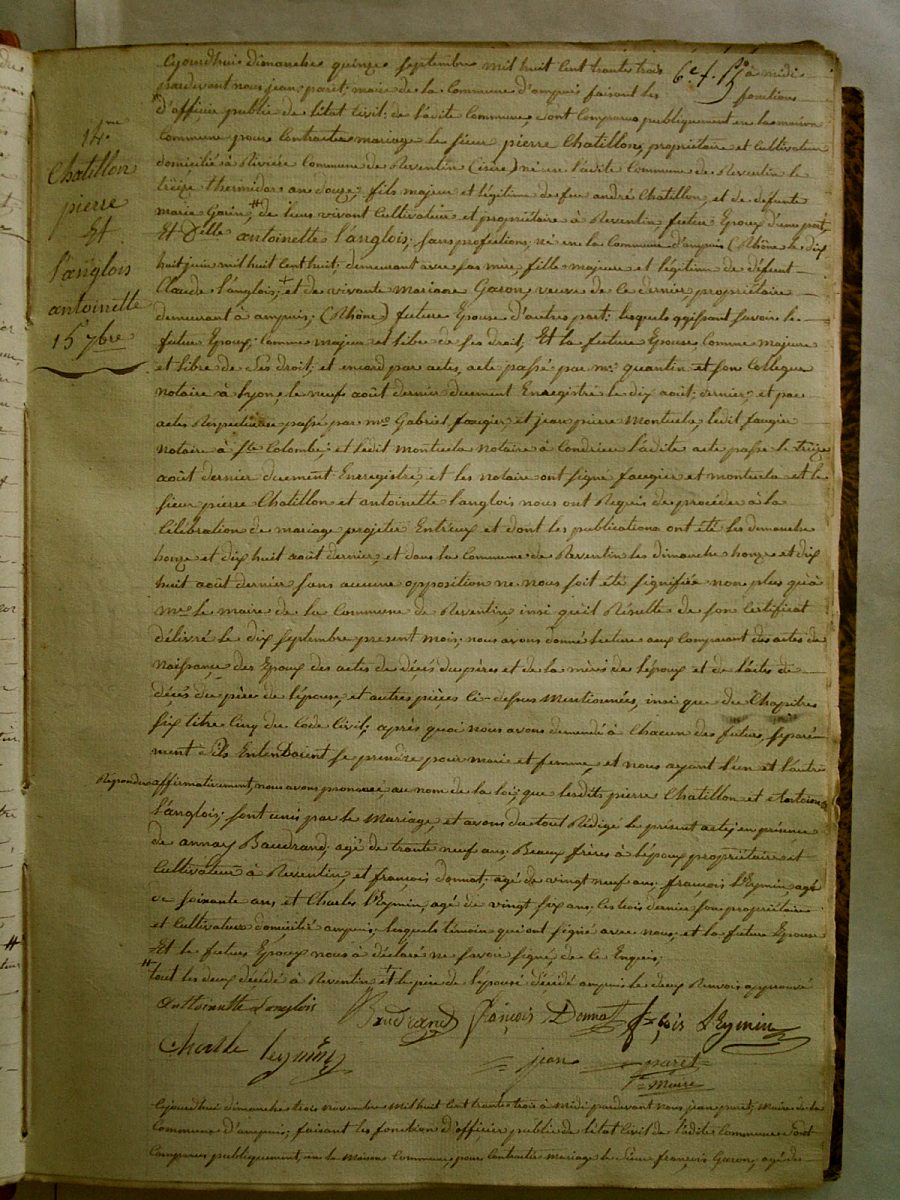 Cejourdhui dimanche quinze septembre mil huit cent trante trois à midi
pardevant nous jean paret; maire de la Commune d'ampuis faisant les fonctions
d'officie public de l'état Civil: de l'adite Commune sont Comparus publiquement en la maison
Commune pour Contracter mariage le sieur pierre Chatillon, propriétaire et Cultivateur
domicilié à Rivière Commune de Reventin (isere) né en l'adite Commune de Reventin le
treize thermidor an douze, fils majeur et légitime de feu andré Chatillon, et de defunte
marie Garin, # de leurs vivant Cultivateur et propriétaire à Reventin, futur Epoux d'une part,
Et Delle antoinette l'anglois; sans profections, né en la Commune d'ampuis (Rhône) le dix
huit juin mil huit cent huit; demeurant avec sas mere, fille majeure et légitime de défeunt
Claude l'anglois; + et de vivante Mariane Garon, veuve de ce dernier, propriétaire
demeurant à ampuis; (Rhône) future Epouse d'autres part: lesquels agissant savoir le
futur Epoux; Comme majeur et libre de ses droit; Et la future Epouse, Comme majeure
et libre de ses droit; et encord par actes, acte passé par me quantin et son Collegue
notaire à Lyon, le neuf août dernier duement Enregistré le dix août; dernier, et par
actes Respectueux passé par mes Gabriel faugier et jean pierre Montucla, ledit faugier
notaire à Ste Colombe; et ledit montucla notaire à Condrieu l'adite acte passe le treize
août dernier duement Enregistré, et les notaire ont signé faugier et montucla et le
sieur pierre Chatillon et antoinette l'anglois nous ont Requis de procéder à la
Célébration de mariage projeter Entreux et dont les publications ont été les dimanche
honze et dix huit août dernier, et dans la Commune de Reventin les dimanche honze et dix
huit août dernier sans aucune opposition ne nous soit été signifiée non plus qu'à
Mr le maire de la Commune de Reventin, insi qu'il Résulte de son Certificat
délivré le dix septembre present mois; nous avons donné lecture aux Comparant des actes de
Naissance des Epoux des actes de décés du pères et de la mères de l'époux et de l'actes de
décés du père de l'épouse, et autres pièces Ci-desus Mentionnées, insi que du Chapitres
six titre Cinq du Code Civil; après quoi nous avons demandé à Chacun des futurs, séparé-
ment s'ils Entendoient se prendre pour marie et femme, et nous ayant l'un et l'autre
Répondu affirmativement, nous avons prononcé, au nom de la loi; que lesdits pierre Chatillon et antoinette
l'anglois; sont unis par le Mariage, et avons du tout Rédigé le présent acte; en présence
de annay Baudrand; agé de trante neuf ans; Beaux frères à l'époux propriétaire et
Cultivateur à Reventin, et françois donnat; agé de vingt neuf ans: françois l'Eymin, agé
de soixante ans et Charles l'Eymin, agé de vingt six ans: les trois dernier son propriétaire
et Cultivateur domicilié ampuis; lesquels témoin qui ont signé avec nous, et la future Epouse
Et le futurs Epoux nous à déclaré ne savoir signé, de ce Enquis;
# tout les deux décédé à Reventin + et le père de l'épouse décédé ampuis les deux Renvois approuvé
Anthoinette Langlois Baudrand François Donnat fçois l'Eymin
Charlle leymin jean paret
Le Maire
14me
Chatillon
pierre
Et
l'anglois
antoinette
15 7bre
Cejourdhui dimanche trois novembre Mil huit Cent trante trois à Midi pardevant nous jean paret; Maire de la
Commune d'ampuis; faisant les fonction d'officier public de l'état Civil de l'adite Commune sont
Comparus publiquement, en la Maison Commune, pour Contracter Mariage le Sieur françois Garon, agé de